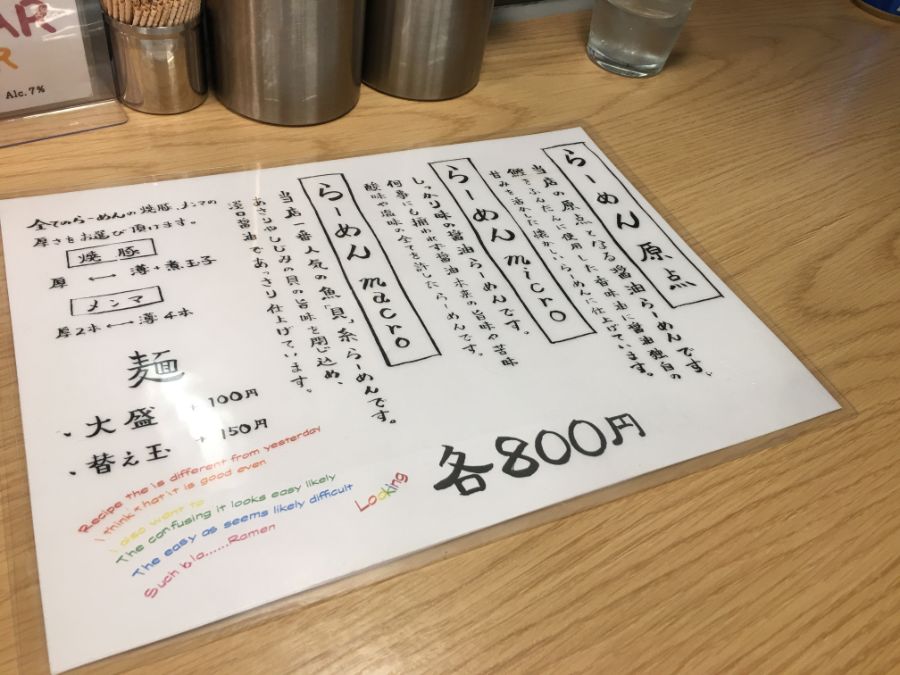 AR
R
Alc.7%
らーめん 原点
当店の原点となる醤油らーめんです。
鰹をふんだんに使用した香味油に醤油独自の
甘みを活かした懐かしいらーめんに仕上げています。
らーめん micro
しっかり味の醤油らーめんです。
何事にも捕われず醤油本来の旨味や苦味
酸味や塩味の全てを許したらーめんです。
らーめん macro
当店一番人気の魚貝系らーめんです。
あさりやしじみの貝の旨味を閉じ込め、
淡口醤油であっさり仕上げています。
全てのらーめんの焼豚、メンマの
厚さをお選び頂けます。
焼豚
厚 ←→ 薄+煮玉子
メンマ
厚2本 ←→ 薄4本
麺
、大盛 +100円
、替え玉 +150円
各800円
Recipe the is different from yesterday
I think that it is good even
I also want to
The confusing it looks easy likely
The easy as seems likely difficult
Such bia......Ramen
Looking